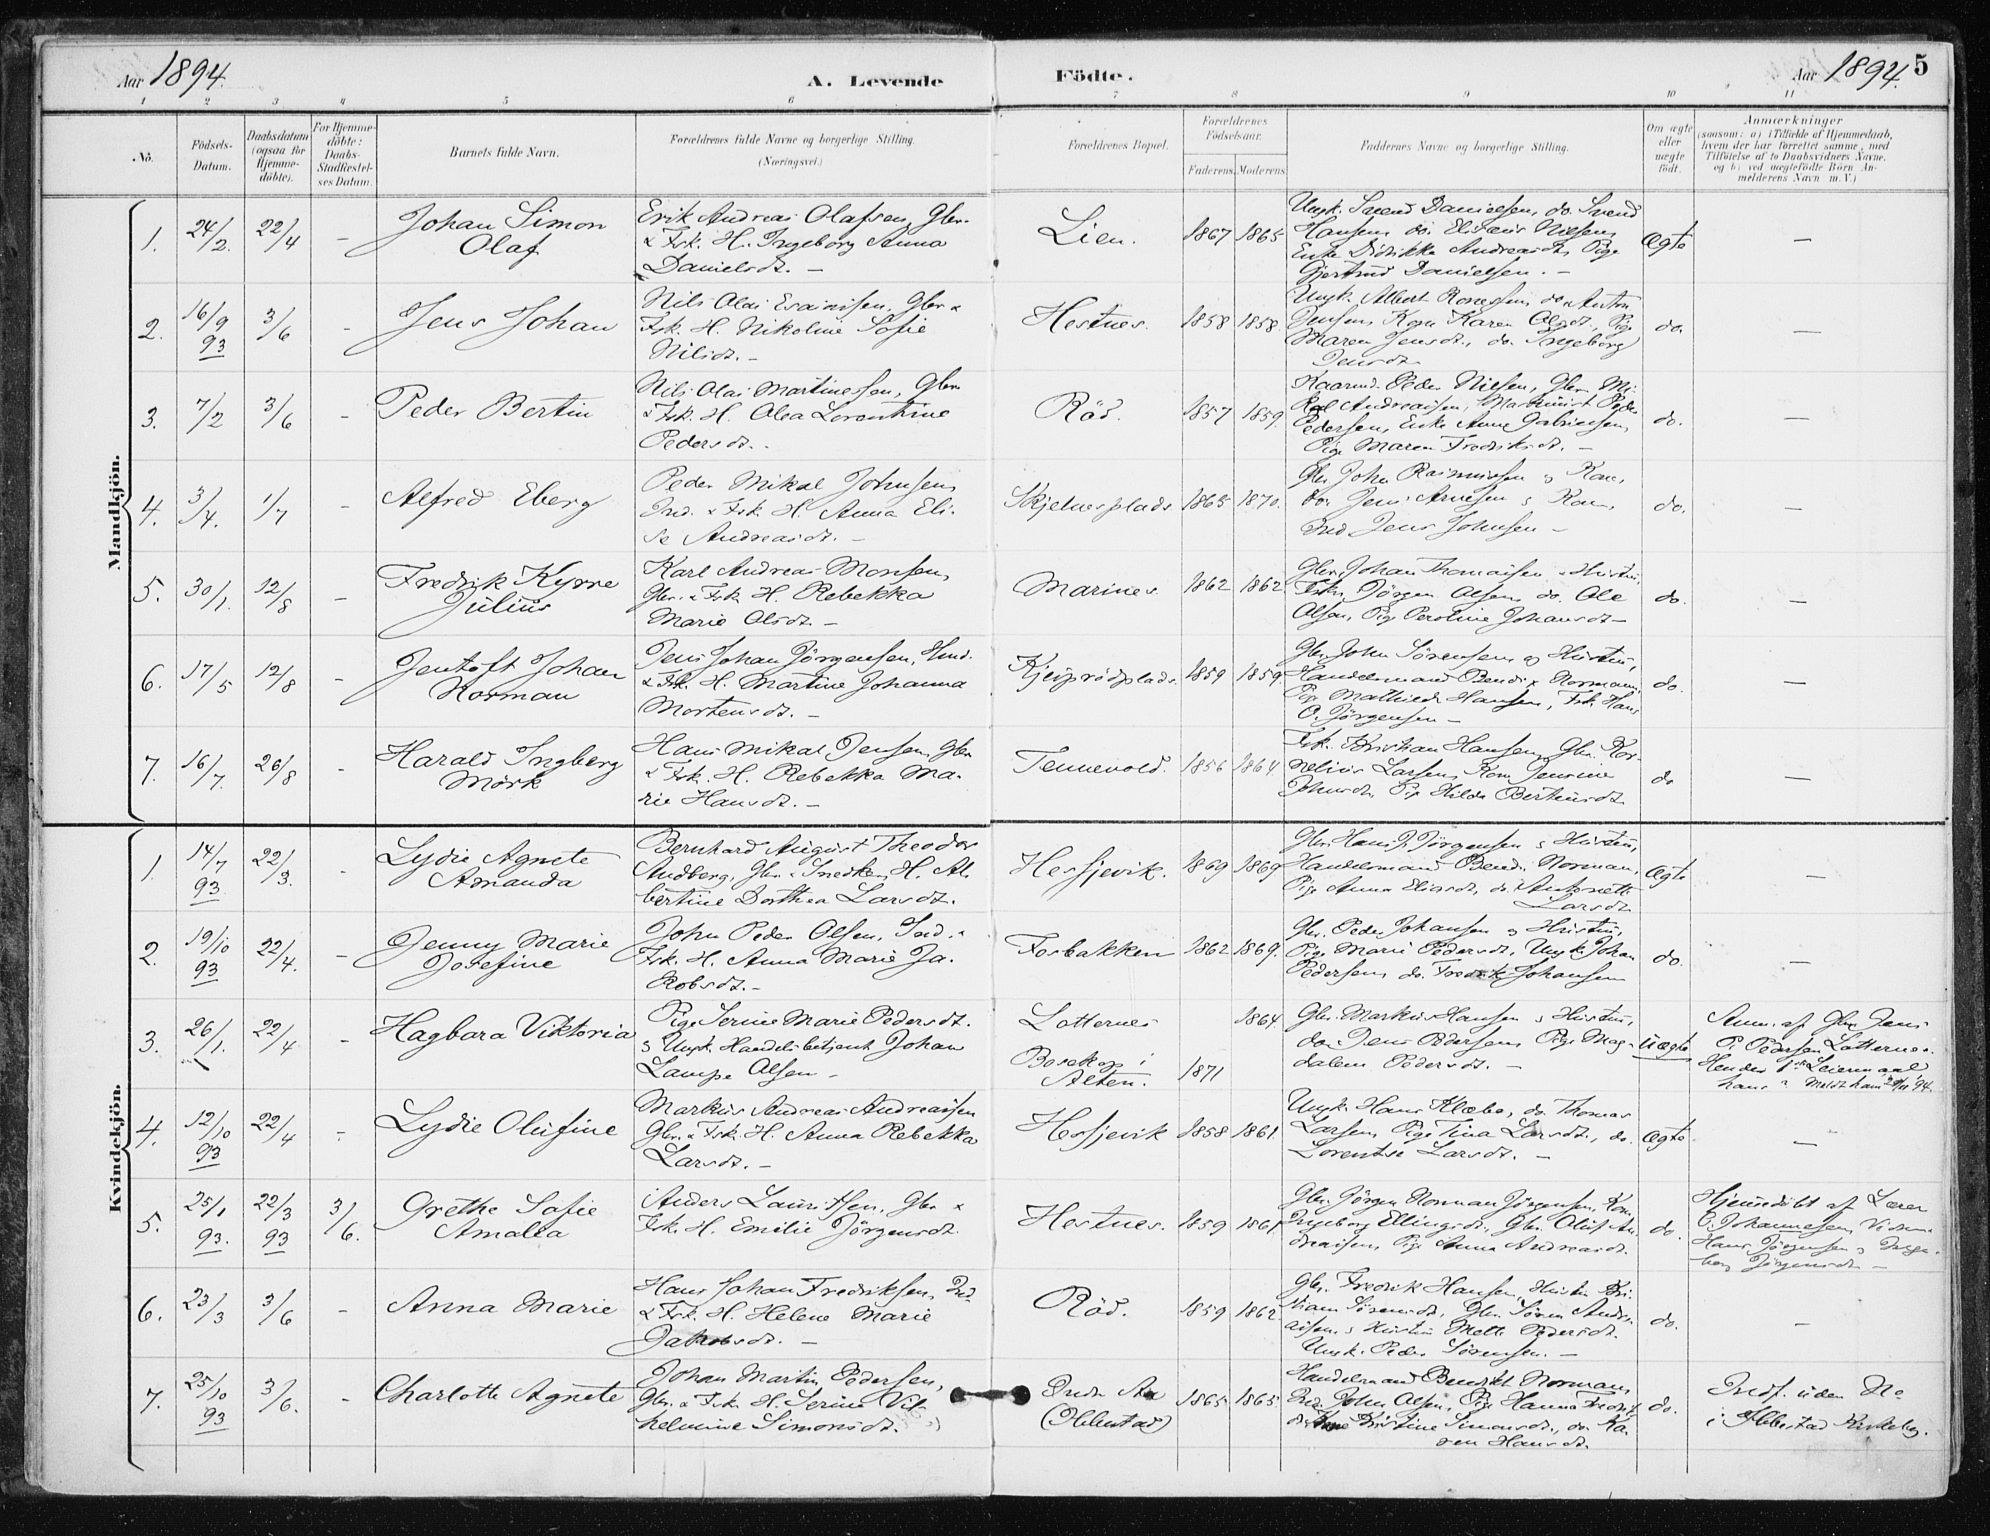 Aar 1894.
A. Levende
Födte.
Aar 1894.
5
1 2 3 4 5 6 7 8 9 10 11
No.
Födsels-
Datum.
Daabsdatum
(ogsaa for
Hjemme-
döbte).
For Hjemme-
döbte:
Daabs-
Stadfæstel-
ses Datum.
Barnets fulde Navn.
Forældrenes fulde Navne og borgerlige Stilling.
(Næringsvei.)
Forældrenes Bopæl.
Forældrenes
Födselsaar.
Faderens. Moderens.
Faddernes Navne og borgerlige Stilling.
Om ægte
eller
uægte
födt.
Anmærkninger
(saasom: a) i Tilfælde af Hjemmedaab,
hvem der har forrettet samme, med
Tilföielse af to Daabsvidners Navne,
og b) ved uægtefödte Börn An-
melderens Navn m. V.)
Mandkjön.
1. 24/2. 22/4 –
Johan Simon
Olaf
Erik Andreas Olafsen, Gbr.
& Fsk. H. Ingeborg Anna
Danielsdt. –
Lien. 1867 1865
Ungk. Svend Danielsen, do. Svend
Hansen, do. Nielsen,
Enke Didrikke Andreasdt., Pige
Gjertrud Danielsen. –
Ægte –
2. 16/9 93 3/6 –
Jens Johan
Nils Olai Esaissen, Gbr. &
Fsk. H. Nikoline Sofie
Nilsdt. –
Hestnes. 1858 1858.
Ungk. Albert do. Anton
Jensen, Kone Karen Olsdt., Pige
Maren Jensdt., do. Ingeborg
Jensdt.
do. –
3. 7/2 3/6 –
Peder Bertin
Nils Olai Martinessen, Gbr.
& Fsk. H. Olea Lorentine
Pedersdt. –
Röd. 1857 1859.
Kaarmd. Peder Nielsen, Gbr. Mi-
kal Andreassen, Peder
Pedersen, Enke Anne Gabrielsen,
Pige Maren Fredriksdt. –
do. –
4. 3/4. 1/7 –
Alfred Eberg
Peder Mikal Johnsen,
Ind. & Fsk. H. Anna Eli-
se Andreasdt. –
Skjelnesplads. 1865 1870.
Gbr. John Rasmussen & Kone,
do. Jens Arnesen & Kone,
Ind. Jens Johnsen –
do. –
5. 30/1. 12/8 –
Fredrik Kyrre
Julius
Karl Andreas Monsen,
Gbr. & Fsk. H. Rebekka
Marie Olsdt. –
Marines. 1862 1862
Gbr. Johan Thomassen & Hustru,
Fsk. Jörgen Olsen, do. Ole
Olsen, Pige Peroline Johansdt –
do. –
6. 17/5 12/8 –
Jentoft Johan
Norman
Jens Johan Jörgensen, Hmd.
& Fsk. H. Martine Johanna
Mortensdt. –
1859 1859.
Gbr. John Sörensen og Hustru,
Handelsmand Bendix Normann,
Pige Mathilde Hansen, Fsk. Hans
O. Jörgensen –
do. –
7. 16/7. 26/8 –
Harald Ingberg
Mörk
Hans Mikal Jensen, Gbr.
& Fsk. H. Rebekka Ma-
rie Hansdt. –
Tennevold. 1856 1864.
Fsk. Kristian Hansen, Gbr. Kor-
nelius Larsen, Kone Jensine
Johnsdt., Pige Hilda Bertinusdt.
do –
Kvindekjön.
1. 14/7 93 22/3. –
Lydie Agnete
Amanda
Bernhard August Theodor
Andberg, Gbr. & Snedker, H. Al-
bertine Dorthea Larsdt.
Hesfjevik. 1869 1869
Gbr. Hans J. Jörgensen & Hustru,
Handelsmand Bend. Norman,
Pige Anna Eliasdt, do. Antonette
Larsdt.
Ægte –
2. 19/10 93 22/4. –
Jenny Marie
Josefine
John Peder Olsen, Ind. &
Fsk. H. Anna Marie Ja-
kobsdt. –
Forbakken 1862 1869.
Gbr. Peder Johansen og Hustru,
Pige Marie Pedersdt., Ungk. Johan
Pedersen, do. Fredrik Johansen
do. –
3. 26/1. 22/4 –
Hagbara Viktoria
Pige Serine Marie Pedersdt.
& Ungk. Handelsbetjent Johan
Lampe Olsen –
Lotternes
Bosekop i
Alten. 1871 1864.
Gbr. Markus Hansen & Hustru,
do. Jens Pedersen, Pige Mag-
dalen Pedersdt. –
Uægte
Anm. af Gbr. Jens
P. Pedersen Lotternes.
Hendes 1ste Leiermaal
hans
4. 12/10 93 22/4 –
Lydie Olufine
Markus Andreas Andreassen
Gbr. & Fsk. H. Anna Rebekka
Larsdt. –
Hesfjevik 1858 1861.
Ungk. Hans Klæbo, do. Thomas
Larsen, Pige Tina Larsdt., do.
Lorentse Larsdt. –
Ægte –
5. 25/1 93. 22/3 93 3/6.
Grethe Sofie
Amalia
Anders Lauritsen, Gbr. &
Fsk. H. Emilie Jörgensdt.
Hestnes. 1859 1861.
Gbr. Jörgen Norman Jörgensen, Kone
Ingeborg Ellingsdt., Gbr. Oluf An-
dreassen, Pige Anna Andreasdt.
do.
Hjemedöbt af Lærer
O. Johannesen, Vidner
Hans Jörgensen & Inge-
borg Jörgensdt –
6. 23/3 3/6 –
Anna Marie
Hans Johan Fredriksen, Ind.
& Fsk. H. Helene Marie
Jakobsdt. –
Röd. 1859 1862.
Gbr. Fredrik Hansen, Hustru
Sörensdt., Gbr. Sören Andre-
assen & Hustru Mette Pedersdt.
Ungk. Peder Sörensen. –
do. –
7. 25/10 93 3/6. –
Charlotte Agnete
Johan Martin Pedersen,
Gbr. & Fsk. H. Serine Vil-
helmine Simonsdt.
Indre Aa
(Ibbestad) 1865 1865.
Handelsmand Benedikt Norman,
Ind. John Olsen, Pige Hanna
Kristine Simonsdt., do. Ka-
ren Hansdt.
do.
Indf. uden No
i Ibbestad Kirkebog.